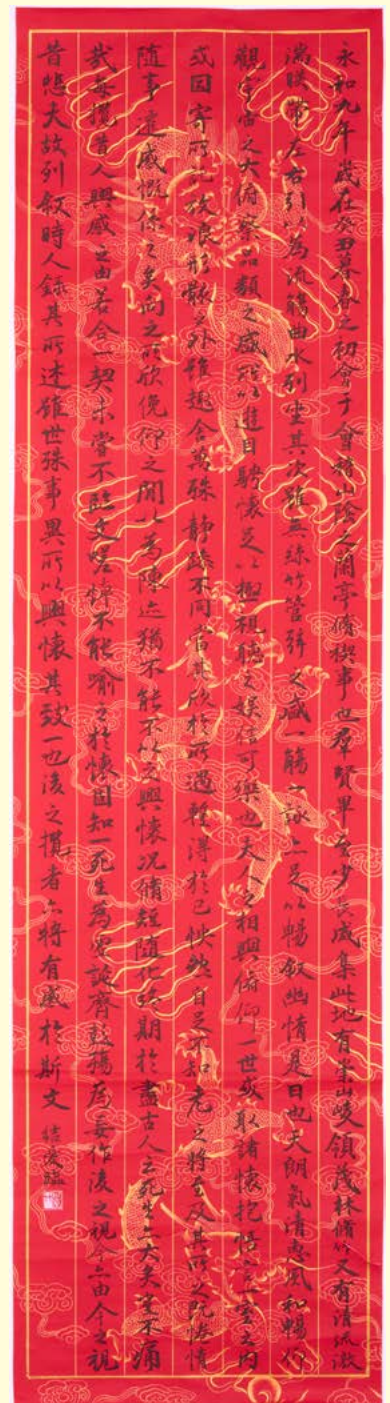 永和九年歲在癸丑暮春之初會于會稽山陰之蘭亭脩稧事也群賢畢至少長咸集此地有崇山峻領茂林脩竹又有清流激
湍暎帶左右引以為流觴曲水列坐其次雖無絲竹管弦之盛一觴一詠亦足以暢敘幽情是日也天朗氣清惠風和暢仰
觀宇宙之大俯察品類之盛所以遊目騁懷足以極視聽之娛信可樂也夫人之相與俯仰一世或取諸懷抱悟言一室之內
或因寄所託放浪形骸之外雖趣舍萬殊靜躁不同當其欣於所遇暫得於己怏然自足不知老之將至及其所之既惓情
隨事遷感慨係之矣向之所欣俛仰之間以為陳迹猶不能不以之興懷況脩短隨化終期於盡古人云死生亦大矣豈不痛
哉每攬昔人興感之由若合一契未嘗不臨文嗟悼不能喻之於懷固知一死生為虛誕齊彭殤為妄作後之視今亦由今之視
昔悲夫故列敘時人錄其所述雖世殊事異所以興懷其致一也後之攬者亦將有感於斯文